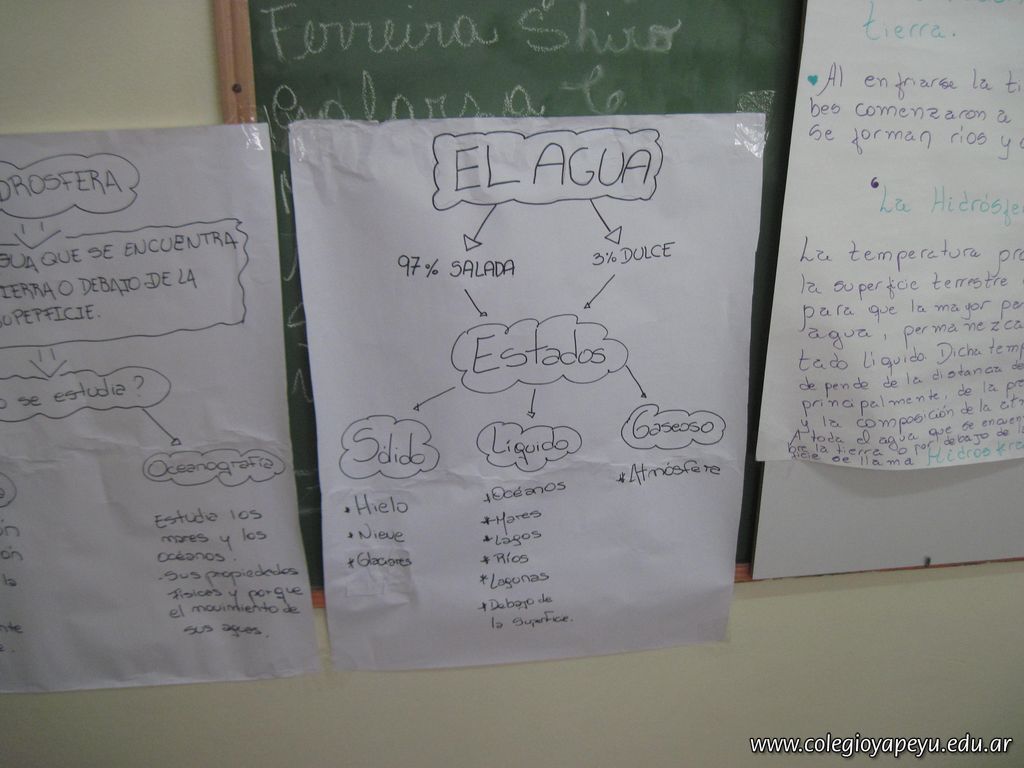 Ferreira Shiro
DROSFERA
GUA QUE SE ENCUENTRA
TIERRA O DEBAJO DE LA
SUPERFICIE.
O se estudia?
Oceanografía
Estudia los
mares y los
océanos.
-sus propiedades
físicas y porque
el movimiento de
sus aguas.
la
EL AGUA
97% SALADA
3% DULCE
Estados
Sólido
Líquido
Gaseoso
* Hielo
* Nieve
* Glaciares
* Océanos
* Mares
* Lagos
* Ríos
* Lagunas
* Debajo de
la superficie.
* Atmósfera
tierra.
Al enfriarse la ti
bes comenzaron a
se forman ríos y
La Hidrósfe
La temperatura pro
la superficie terrestre
para que la mayor par
agua, permanezca
tado líquido. Dicha temp
de pende de la distancia de
principalmente, de la pre
y la composición de la atm
A toda el agua que se encuen
la tierra o por debajo de la
se llama Hidrosfera
www.colegioyapeyu.edu.ar